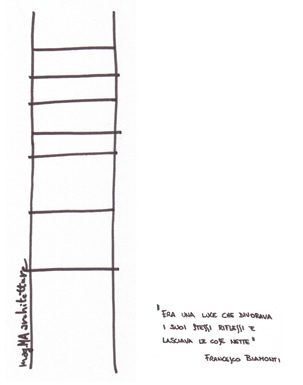 magMA architetture
"ERA UNA LUCE CHE DIVORAVA
I SUOI STESSI RIFLESSI E
LASCIAVA LE COSE NETTE"
FRANCESCO BIAMONTI